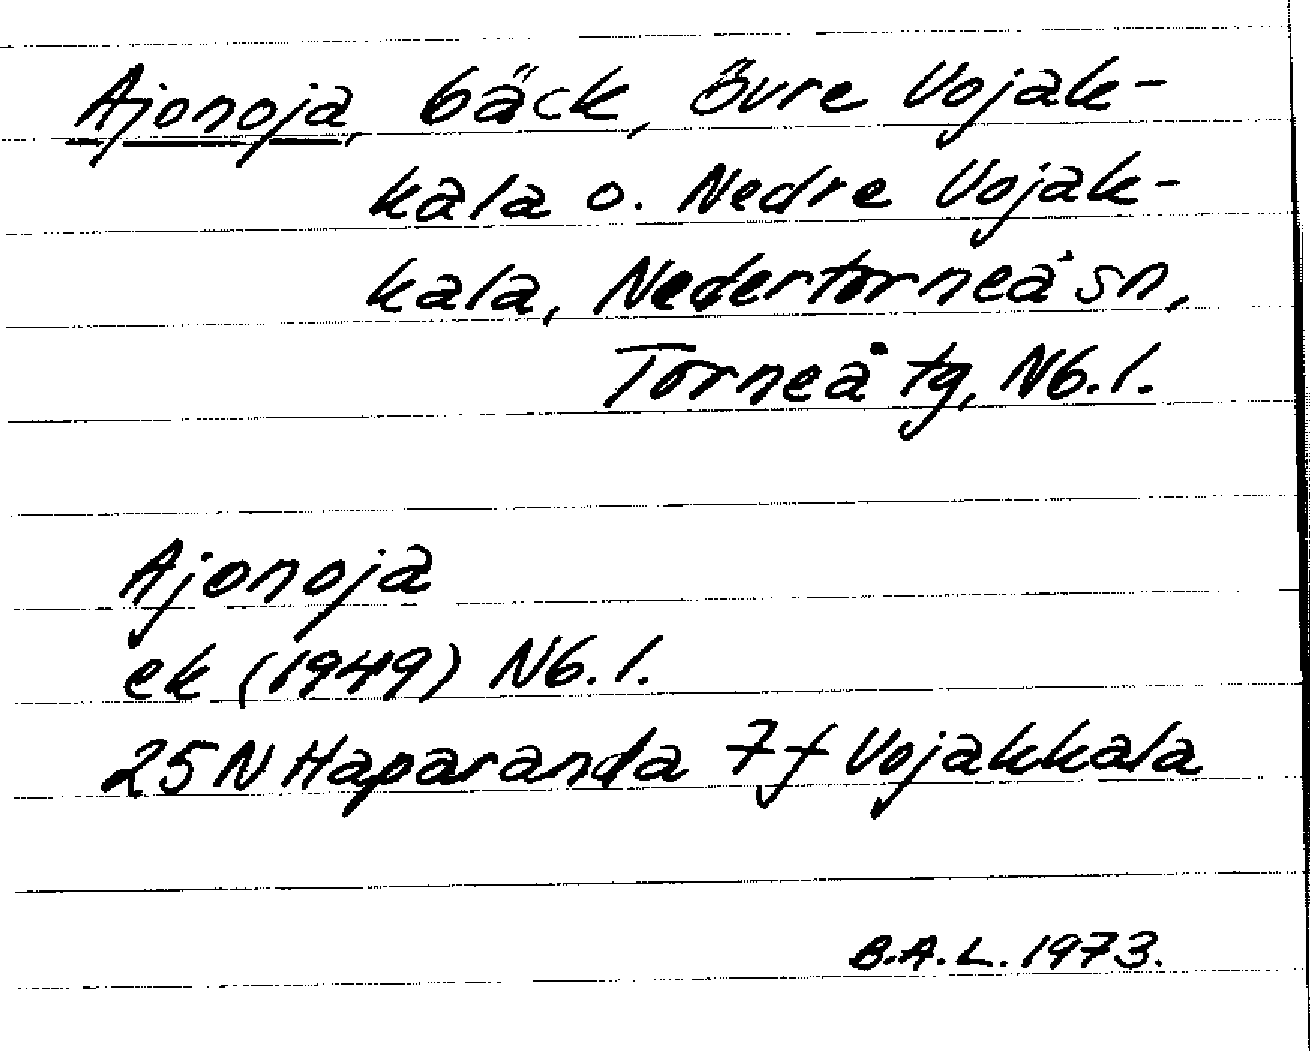 Ajonoja, bäck, Övre Vojak-
kala o. Nedre Vojak-
kala, Nedertorneå sn,
Torneå tg, Nb. l.
Ajonoja
ek (1949) Nb. l.
25N Haparanda 7f Vojakkala
B.A.L. 1973.